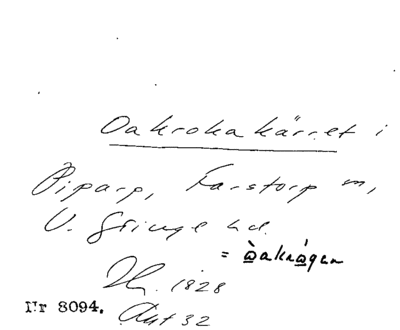 Oakrokakärret i
Piparp, Farstorp sn,
V. Göinge hd.
= òakrågen
Lh. 1828
Nr 8094. Akt 32